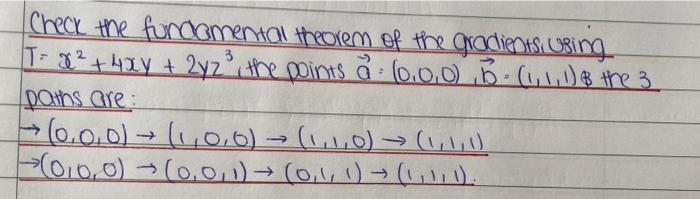 Check the fundamental theorem of the gradients, using
T = x² + 4xy + 2yz³, the points a⃗ = (0,0,0), b⃗ = (1,1,1) & the 3
paths are:
→ (0,0,0) → (1,0,0) → (1,1,0) → (1,1,1)
→ (0,0,0) → (0,0,1) → (0,1,1) → (1,1,1).